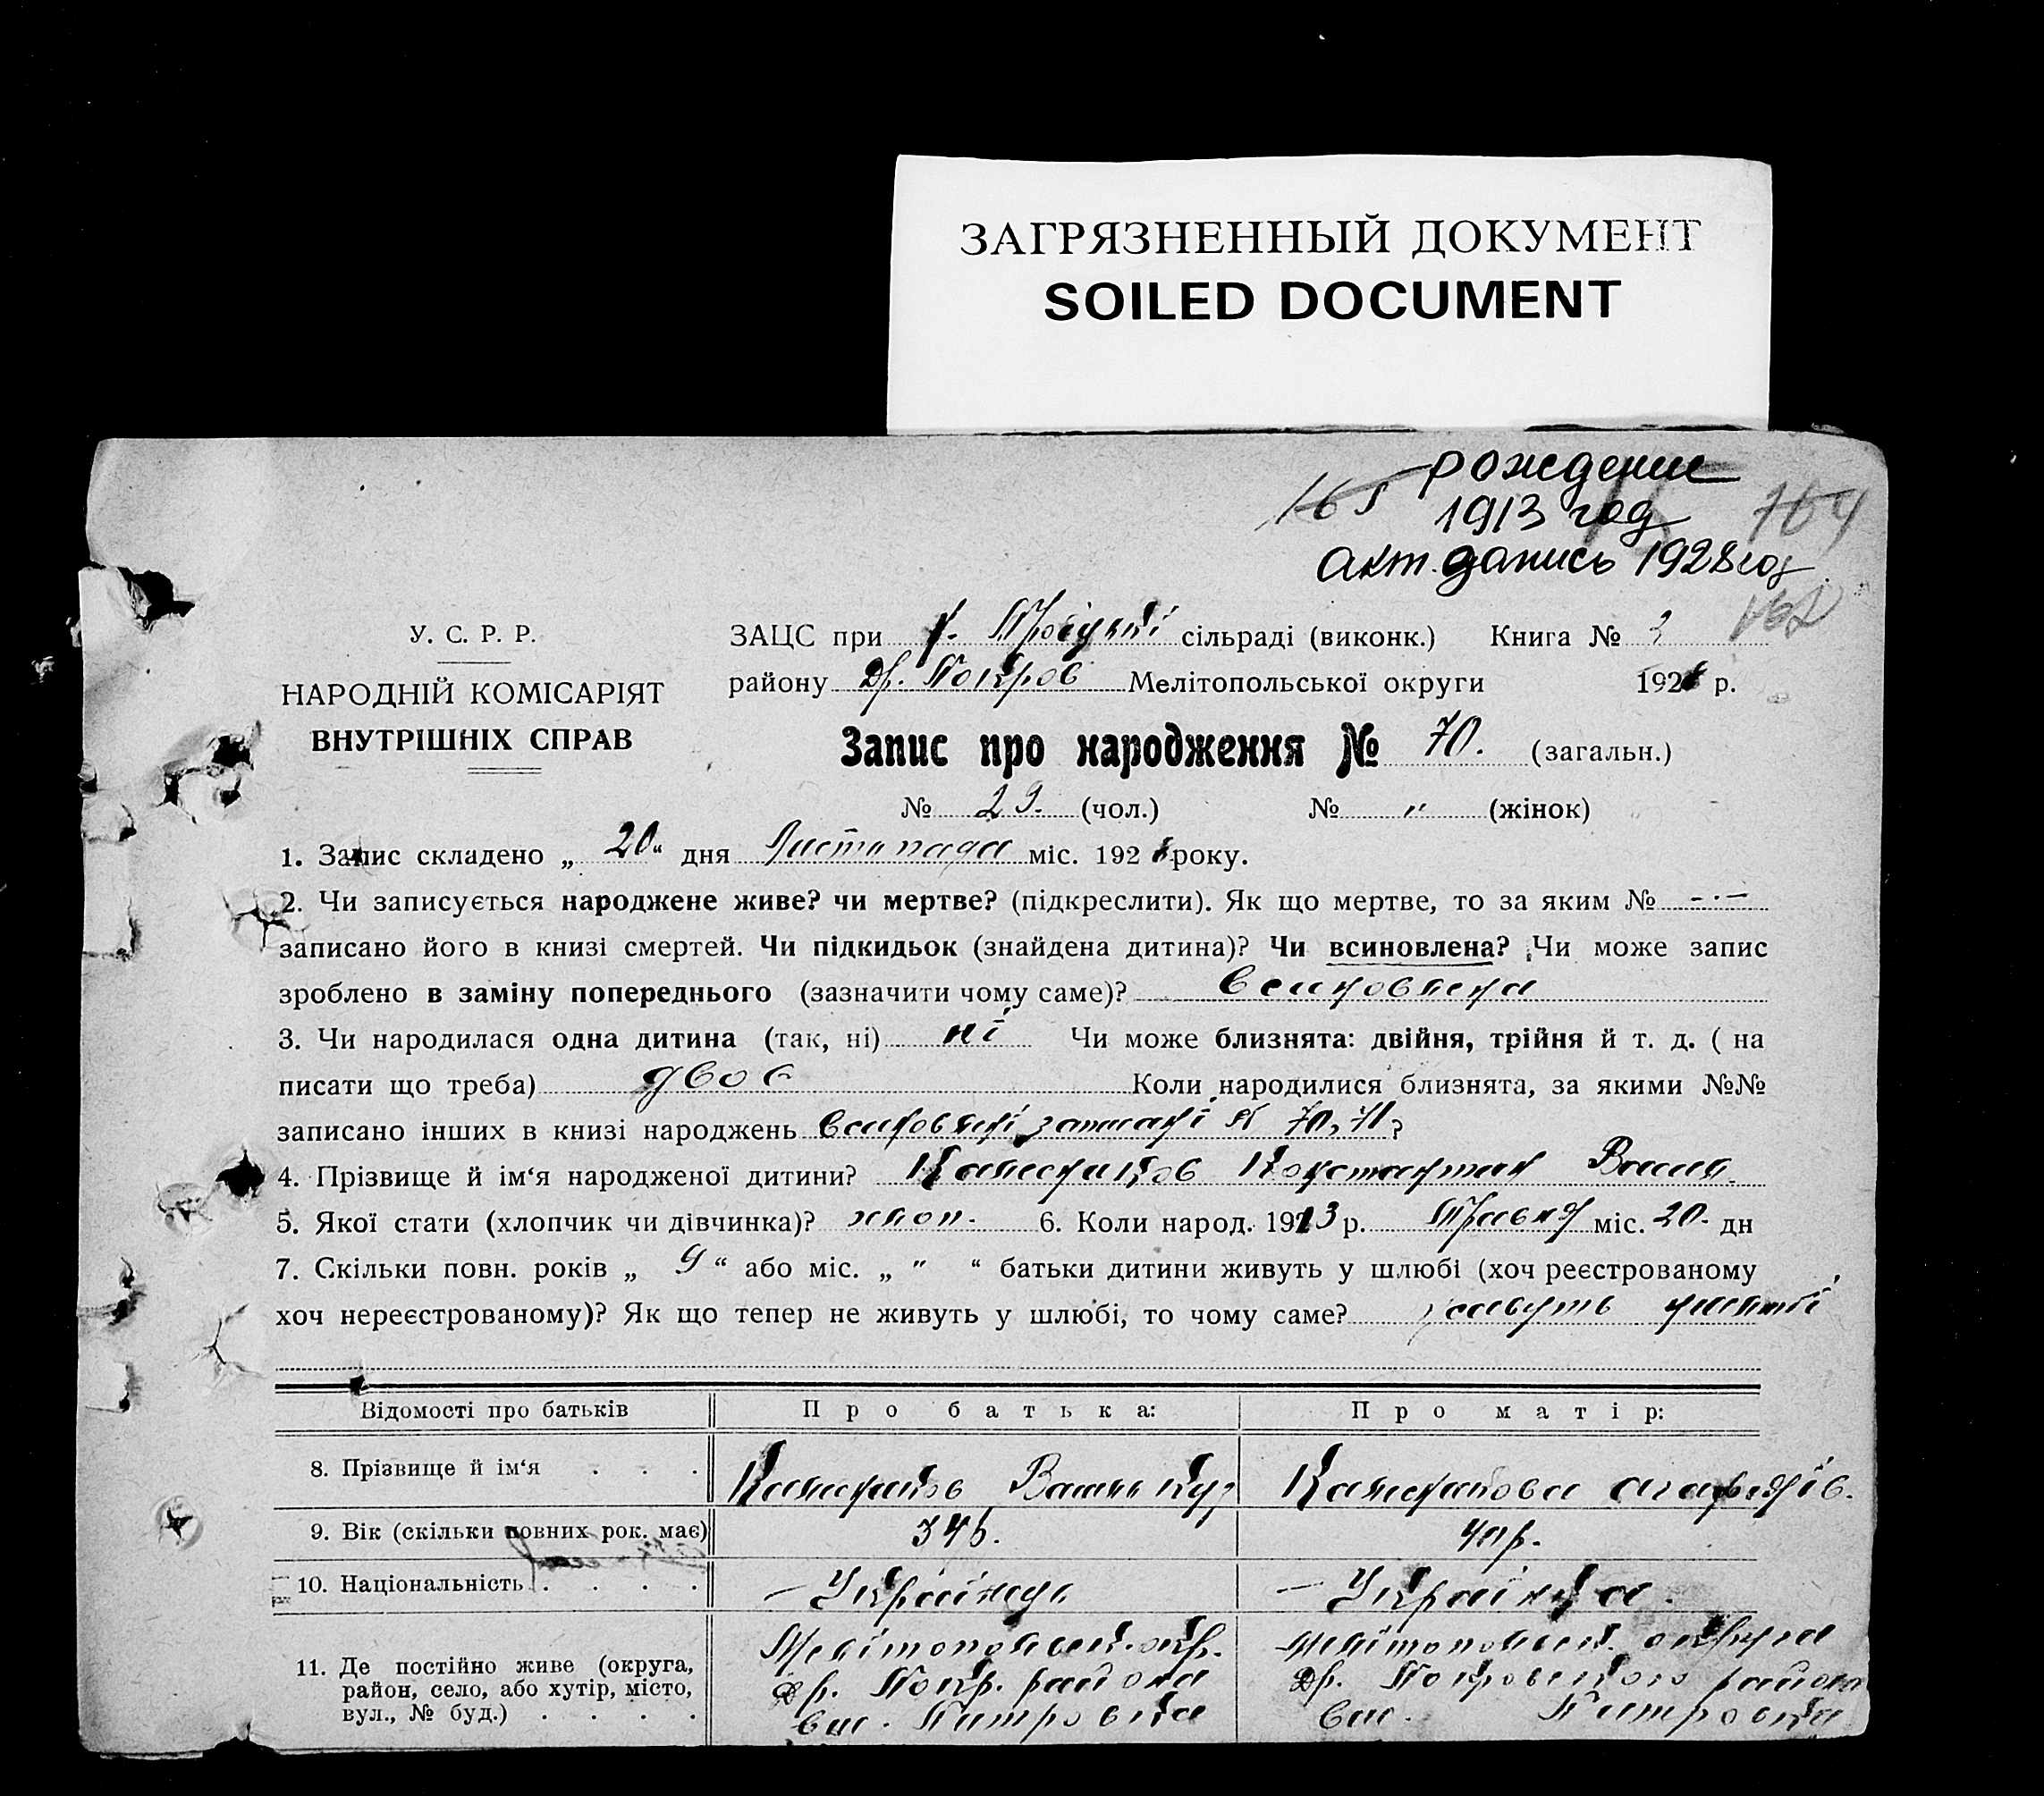 ЗАГРЯЗНЕННЫЙ ДОКУМЕНТ
SOILED DOCUMENT
165 рождение
1913 год 164
акт. запись 1928 год
162
У. С. Р. Р.
НАРОДНІЙ КОМІСАРІЯТ
ВНУТРІШНІХ СПРАВ
ЗАЦС при Троїцькі сільраді (виконк.) Книга №
району Др. Покров Мелітопольської округи 1928 р.
Запис про народження № 70. (загальн.)
№ 29. (чол.) № " (жінок)
1. Запис складено „ 20 “ дня Листопада міс. 1928 року.
2. Чи записується народжене живе? чи мертве? (підкреслити). Як що мертве, то за яким № -·-
записано його в книзі смертей. Чи підкидьок (знайдена дитина)? Чи всиновлена? Чи може запис
зроблено в заміну попереднього (зазначити чому саме)? Всиновлена
3. Чи народилася одна дитина (так, ні) ні Чи може близнята: двійня, трійня й т. д. ( на
писати що треба) двоє Коли народилися близнята, за якими №№
записано інших в книзі народжень Всиновлені записані № 70, 71 ?
4. Прізвище й ім‘я народженої дитини? Константин
5. Якої стати (хлопчик чи дівчинка)? хлоп. 6. Коли народ. 1913 р. Травня міс. 20 дн
7. Скільки повн. років „ 9 “ або міс. „ " “ батьки дитини живуть у шлюбі (хоч реєстрованому
хоч нереєстрованому)? Як що тепер не живуть у шлюбі, то чому саме? живуть
Відомості про батьків Про батька: Про матір:
8. Прізвище й ім‘я . . .
9. Вік (скільки повних рок. має) 34 р.
10. Національність . . . . — Українець — Українка.
11. Де постійно живе (округа, Мелітопольськ. окр. Мелітопольськ. округа
район, село, або хутір, місто, Др. Покр. района Др. Покровського района
вул., № буд.) . . . .